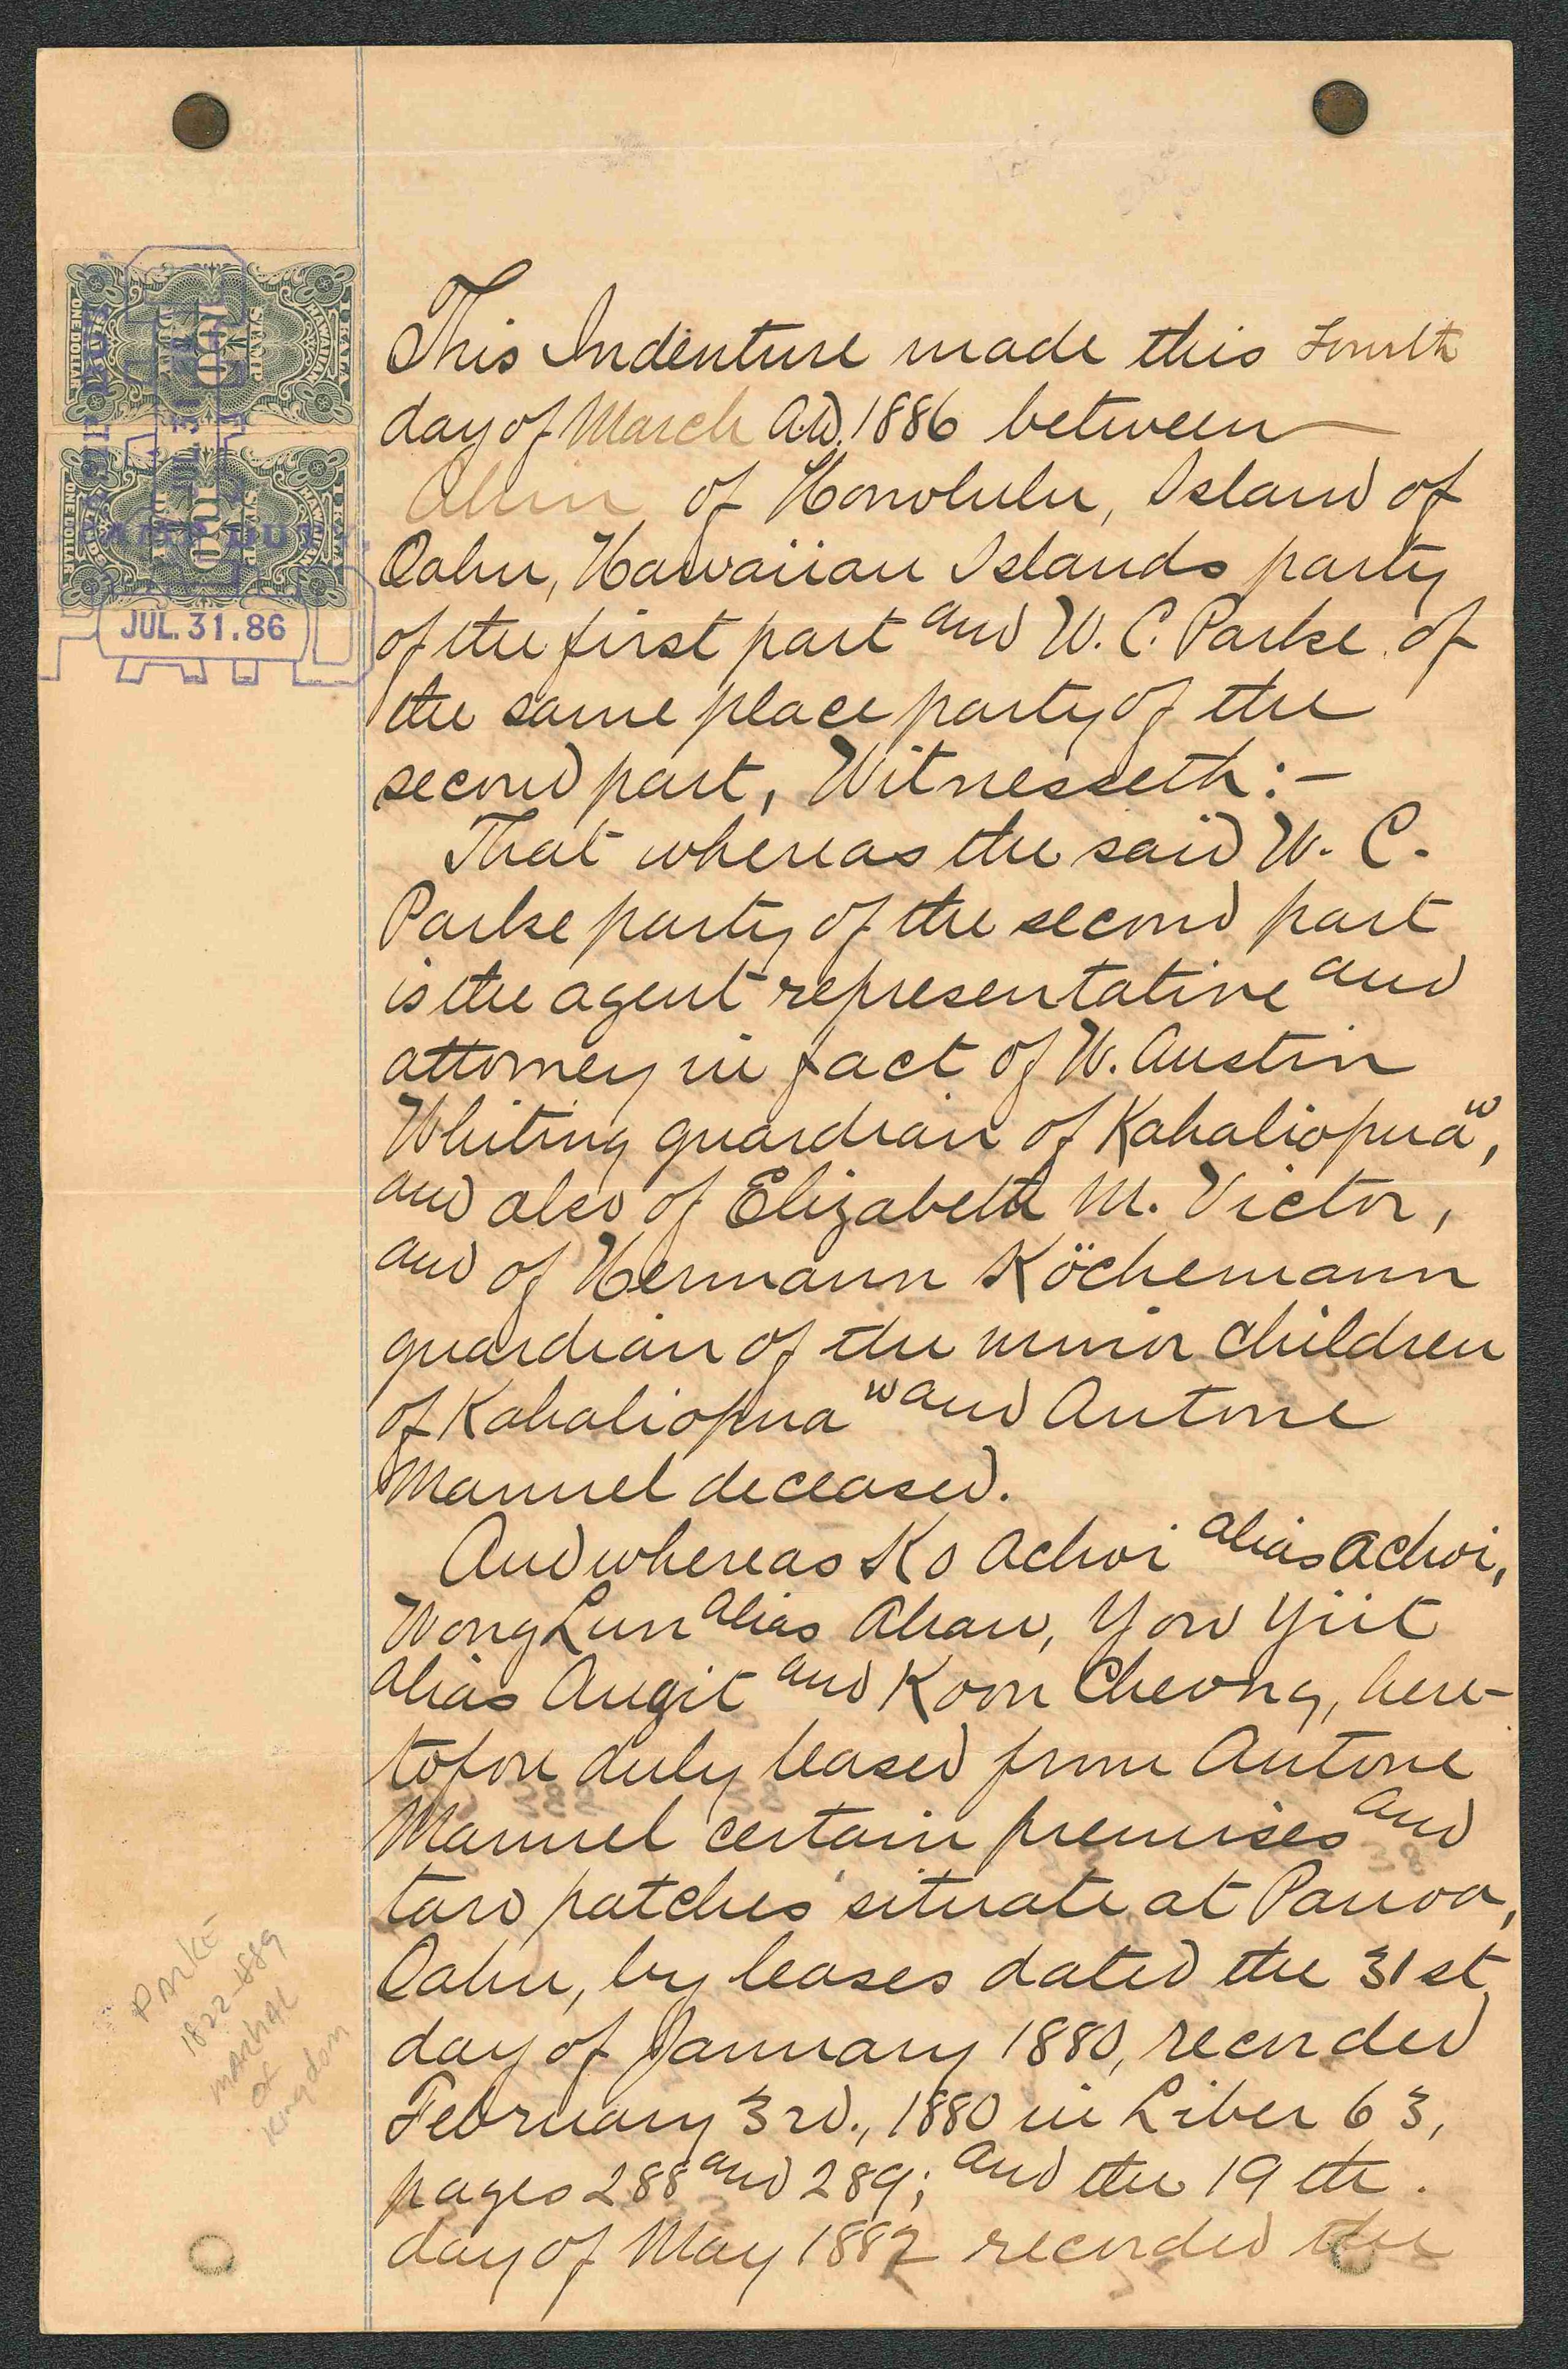 This Indenture made this Fourth
day of March A.D. 1886 between
of Honolulu, Island of
Oahu, Hawaiian Islands party
of the first part and W. C. Parke of
the same place party of the
second part, Witnesseth:-
That whereas the said W. C.
Parke party of the second part
is the agent representative and
attorney in fact of W. Austin
Whiting guardian of Kahaliopua w,
and also of Elizabeth M. Victor,
and of Hermann Köchemann
guardian of the minor children
of Kahaliopua w and Antone
Manuel deceased.
And whereas Ko Achoi alias Achoi,
Wong Lun alias Ahan, You Yiit
alias Augit and Koon Cheong, here-
tofore duly leased from Antone
Manuel certain premises and
taro patches situate at Pauoa,
Oahu, by leases dated the 31st
day of January 1880, recorded
February 3rd., 1880 in Liber 63,
pages 288 and 289; and the 19th.
day of May 1882 recorded the
I KALA
HAWAIIAN
STAMP
100
DUTY
ONE DOLLAR
I KALA
HAWAIIAN
STAMP
100
DUTY
ONE DOLLAR
JUL. 31. 86
PARKE
1822-1889
MARSHAL
of
Kingdom